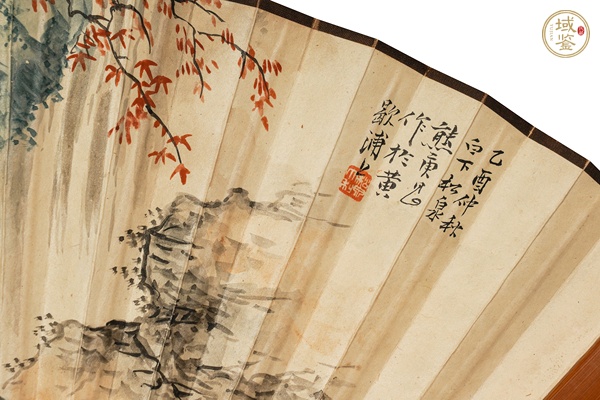 乙酉仲秋
白下松泉
熊庚昌
作於黃
歇浦上
域鉴